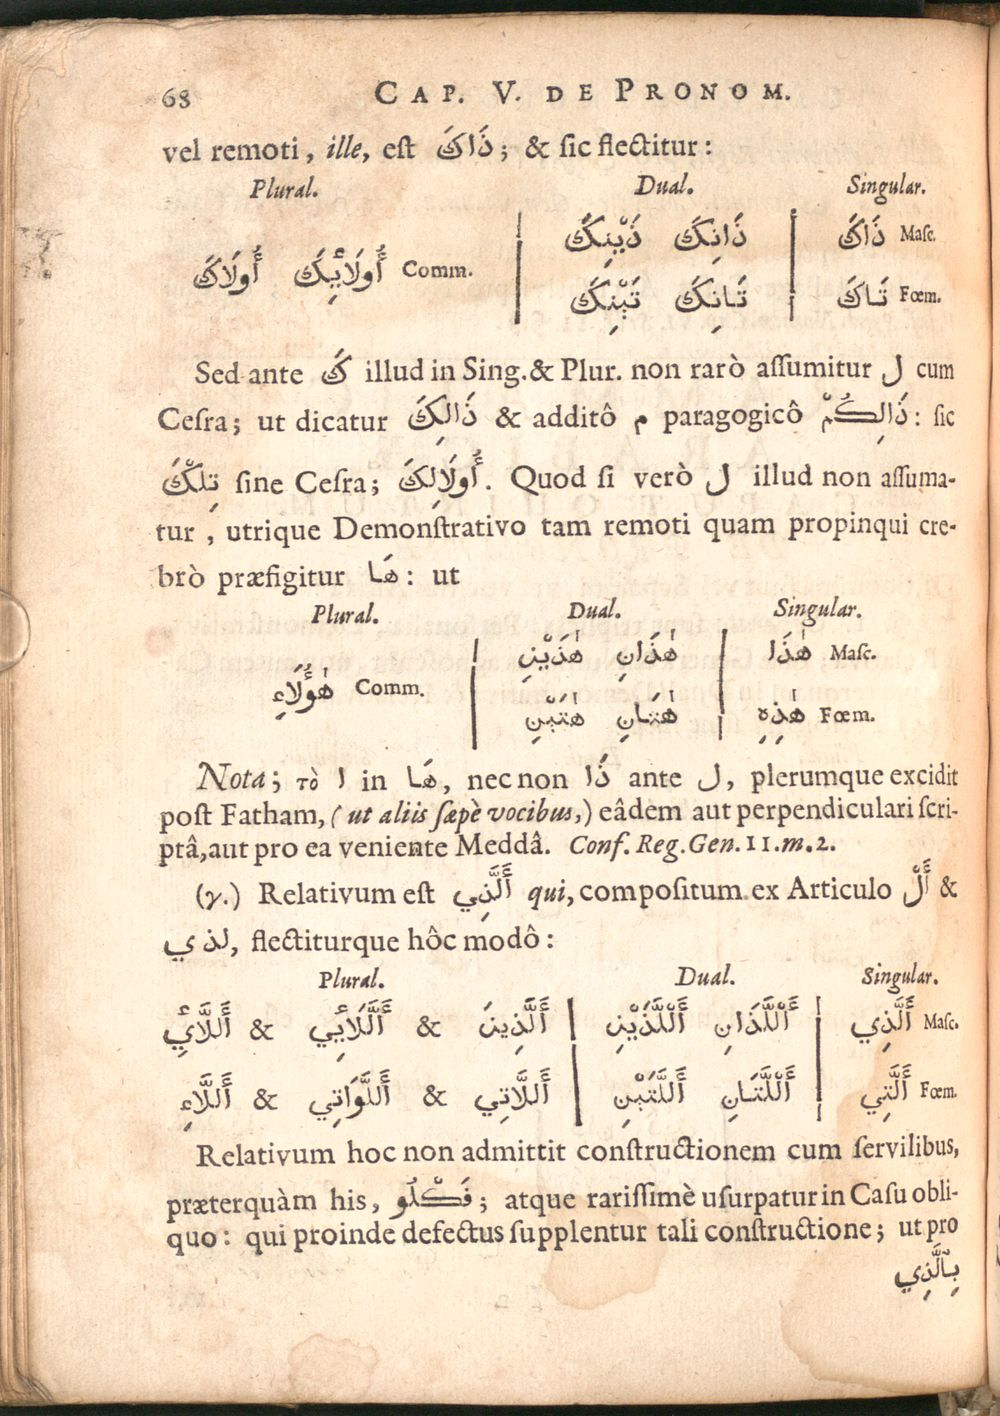 68 CAP. V. DE PRONOM.
vel remoti, ille, est ذَاكَ; & sic flectitur:
Plural. Dual. Singular.
أُولَاكَ أُولَائِكَ Comm. ذَيْنِكَ ذَانِكَ ذَاكَ Masc.
تَيْنِكَ تَانِكَ تَاكَ Fœm.
Sed ante كَ illud in Sing. & Plur. non rarò assumitur ل cum
Cesra; ut dicatur ذَالِكَ & additô م paragogicô ذَالِكُمْ: sic
تِلْكَ sine Cesra; أُولَالِكَ. Quod si verò ل illud non assuma-
tur, utrique Demonstrativo tam remoti quam propinqui cre-
brò præfigitur هَا: ut
Plural. Dual. Singular.
هٰؤُلَاءِ Comm. هٰذَيْنِ هٰذَانِ هٰذَا Masc.
هٰتَيْنِ هٰتَانِ هٰذِهِ Fœm.
Nota; τὸ ا in هَا, nec non ذَا ante ل, plerumque excidit
post Fatham, (ut aliis sæpè vocibus,) eâdem aut perpendiculari scri-
ptâ, aut pro ea veniente Meddâ. Conf. Reg. Gen. 11. m. 2.
(γ.) Relativum est أَلَّذِي qui, compositum ex Articulo أَلْ &
لذي, flectiturque hôc modô:
Plural. Dual. Singular.
أَللَّائِي & أَللَّائِي & أَلَّذِينَ أَللَّذَيْنِ أَللَّذَانِ أَلَّذِي Masc.
أَللَّاءِ & أَللَّوَاتِي & أَللَّاتِي أَللَّتَيْنِ أَللَّتَانِ أَلَّتِي Fœm.
Relativum hoc non admittit constructionem cum servilibus,
præterquàm his, فَكْلُو; atque rarissimè usurpatur in Casu obli-
quo: qui proinde defectus supplentur tali constructione; ut pro
بِٱلَّذِي